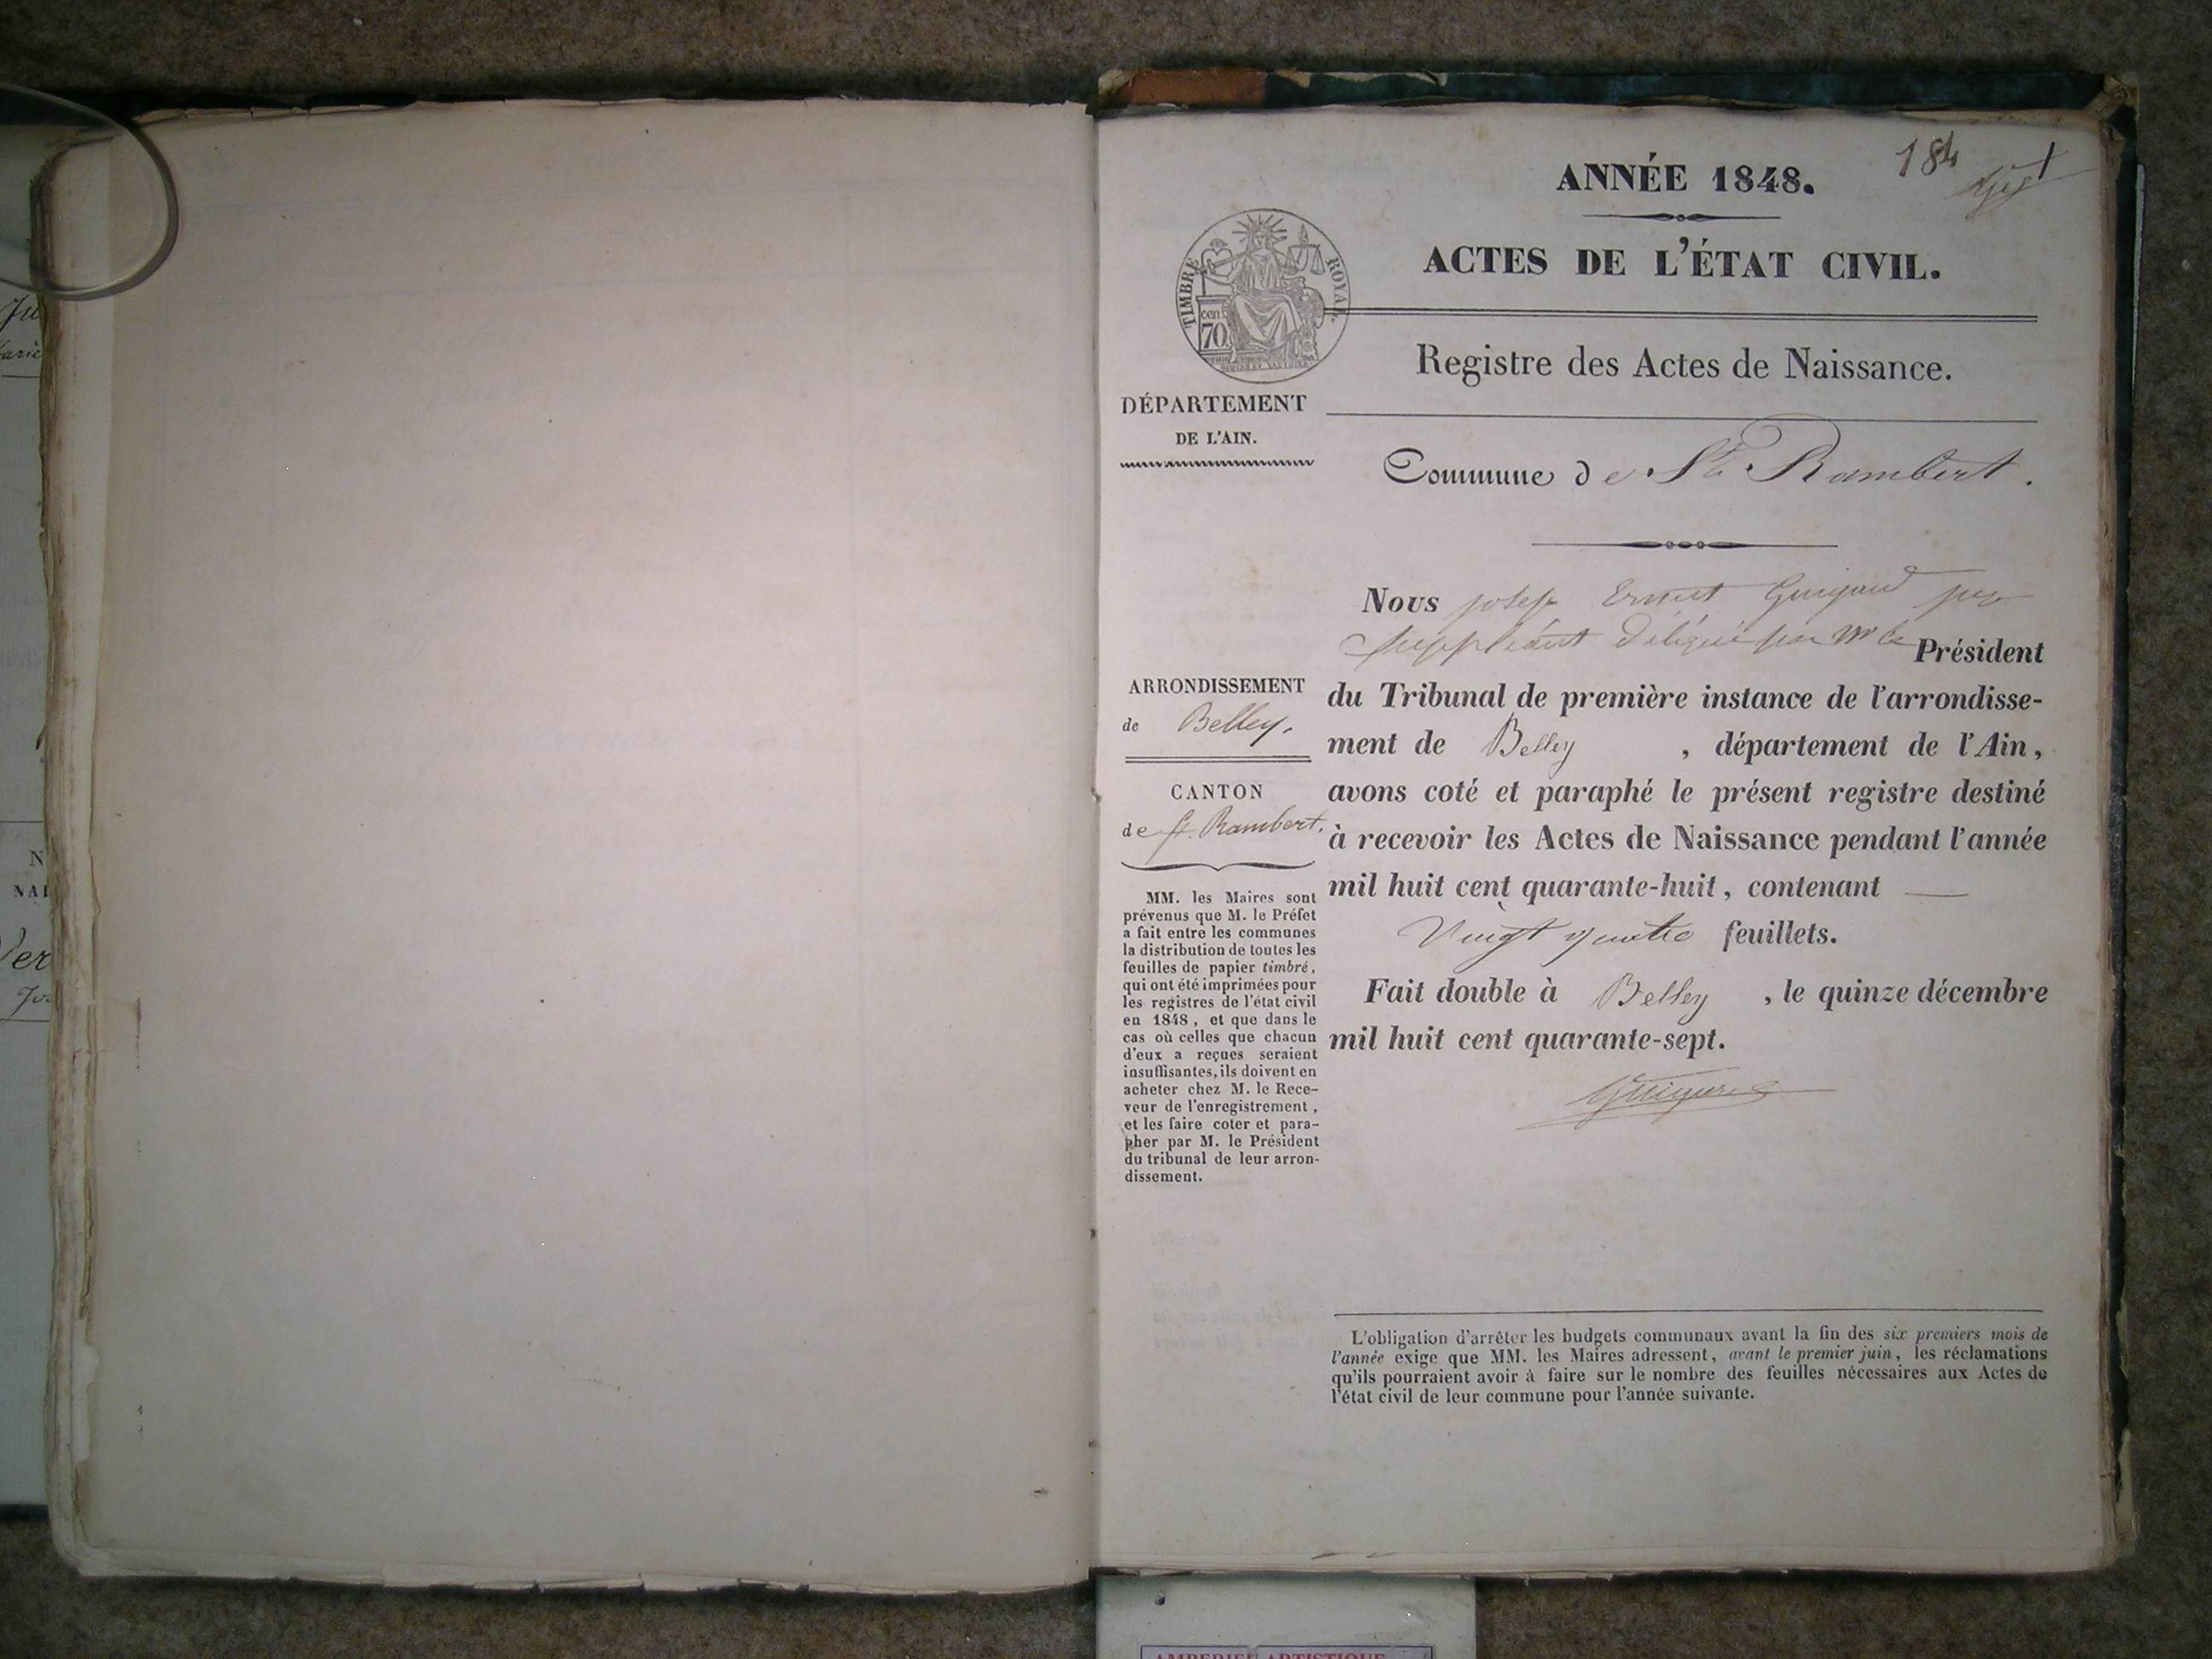 184
ANNÉE 1848.
ACTES DE L'ÉTAT CIVIL.
TIMBRE ROYAL.
cen. 70
Registre des Actes de Naissance.
DÉPARTEMENT
DE L'AIN.
Commune de St. Rambert.
ARRONDISSEMENT
de Belley.
CANTON
de St. Rambert.
MM. les Maires sont
prévenus que M. le Préfet
a fait entre les communes
la distribution de toutes les
feuilles de papier timbré,
qui ont été imprimées pour
les registres de l'état civil
en 1848, et que dans le
cas où celles que chacun
d'eux a reçues seraient
insuffisantes, ils doivent en
acheter chez M. le Rece-
veur de l'enregistrement,
et les faire coter et para-
pher par M. le Président
du tribunal de leur arron-
dissement.
Nous Joseph Ernest Guigard juge
suppléant délégué par Mr le Président
du Tribunal de première instance de l'arrondisse-
ment de Belley, département de l'Ain,
avons coté et paraphé le présent registre destiné
à recevoir les Actes de Naissance pendant l'année
mil huit cent quarante-huit, contenant
Vingt quatre feuillets.
Fait double à Belley, le quinze décembre
mil huit cent quarante-sept.
L'obligation d'arrêter les budgets communaux avant la fin des six premiers mois de
l'année exige que MM. les Maires adressent, avant le premier juin, les réclamations
qu'ils pourraient avoir à faire sur le nombre des feuilles nécessaires aux Actes de
l'état civil de leur commune pour l'année suivante.
AMBERIEU ARTISTIQUE